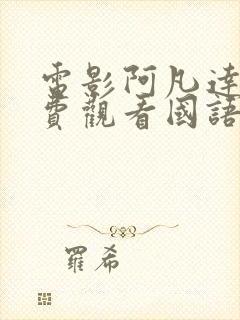 電影阿凡達
費觀看國語
羅希